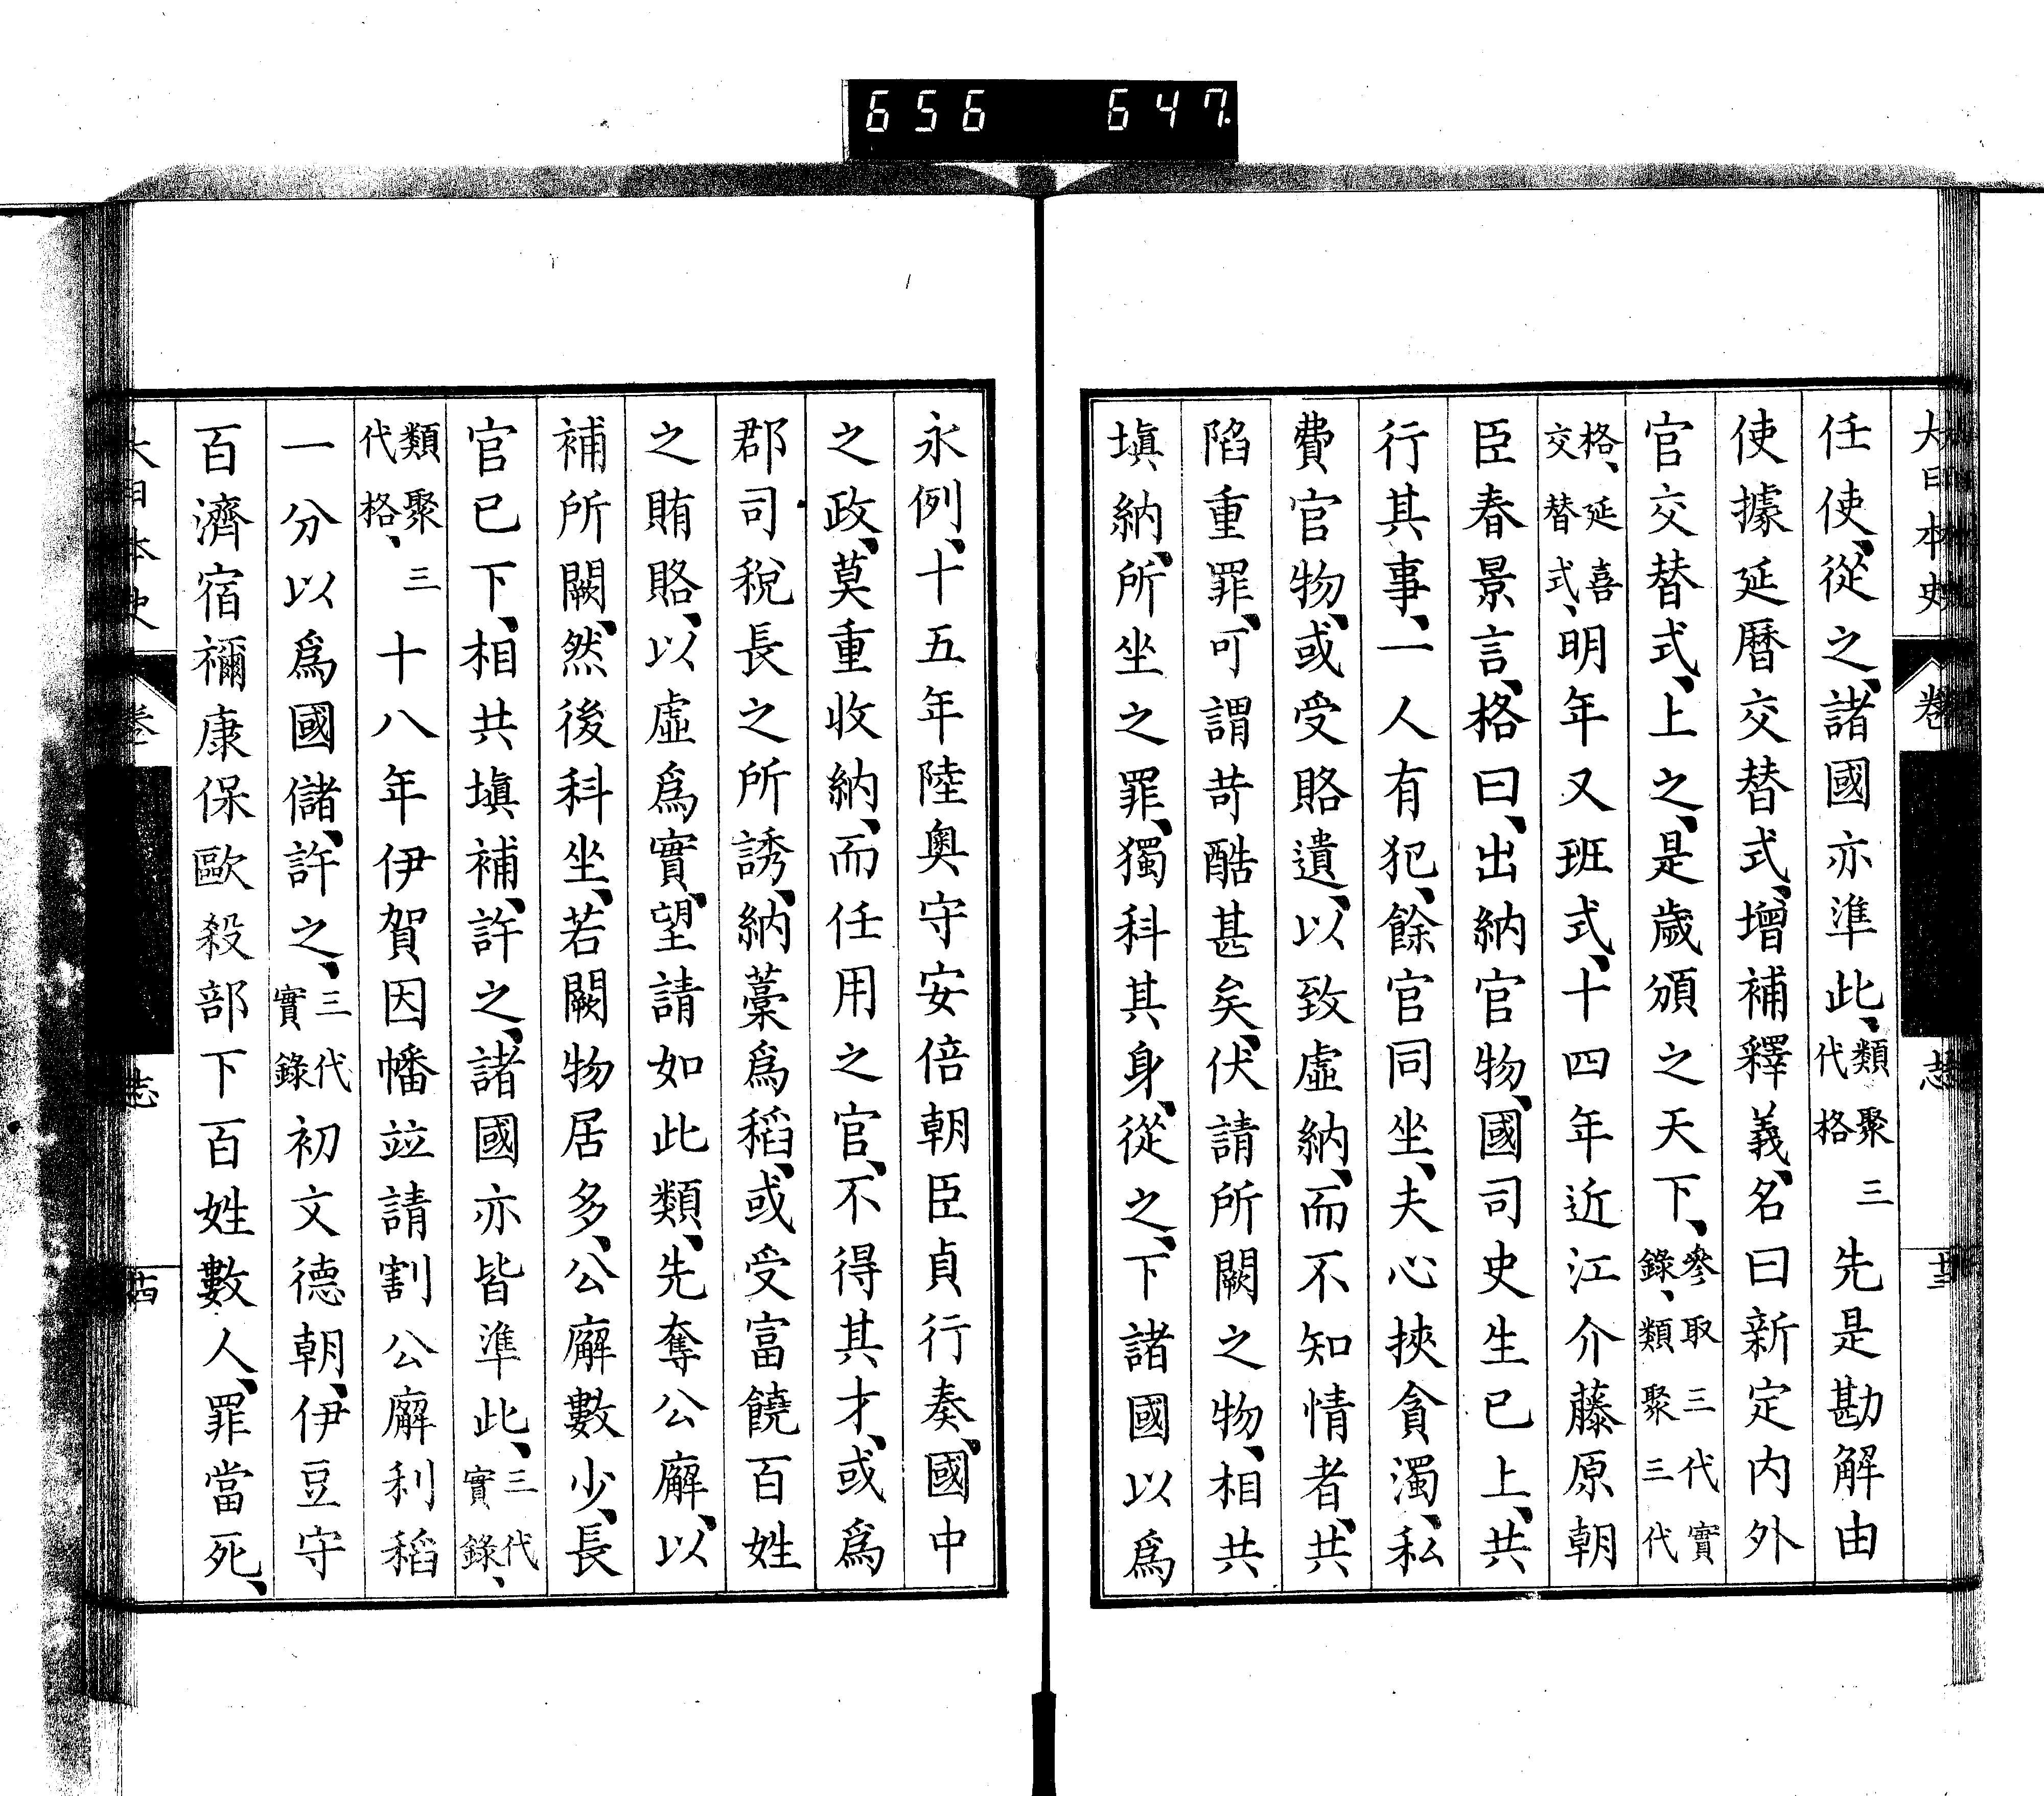 656 647.
大日本史 卷 志 十三
任使、從之、諸國亦準此、類聚三代格 先是勘解由
使據延曆交替式、增補釋義、名曰新定內外
官交替式、上之、是歲頒之天下、參取三代實錄、類聚三代
格、延喜交替式、明年又班式、十四年近江介藤原朝
臣春景言、格曰、出納官物、國司史生已上、共
行其事、一人有犯、餘官同坐、夫心挾貪濁、私
費官物、或受賂遺、以致虛納、而不知情者、共
陷重罪、可謂苛酷甚矣、伏請所闕之物、相共
塡納、所坐之罪、獨科其身、從之、下諸國以爲
永例、十五年陸奧守安倍朝臣貞行奏、國中
之政、莫重收納、而任用之官、不得其才、或爲
郡司稅長之所誘、納藁爲稻、或受富饒百姓
之賄賂、以虛爲實、望請如此類、先奪公廨、以
補所闕、然後科坐、若闕物居多、公廨數少、長
官已下、相共塡補、許之、諸國亦皆準此、三代實錄、
類聚三代格、 十八年伊賀因幡竝請割公廨利稻
一分以爲國儲、許之、三代實錄 初文德朝、伊豆守
百濟宿禰康保歐殺部下百姓數人、罪當死、
大日本史 卷 志 十四